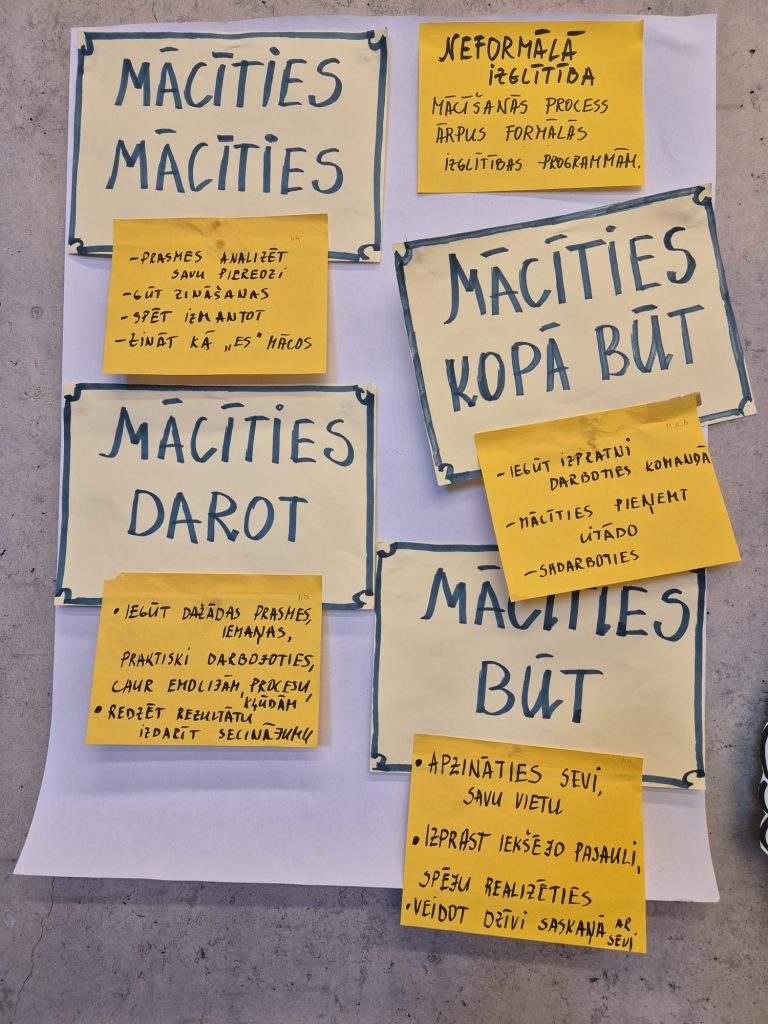 MĀCĪTIES
MĀCĪTIES
- PRASMES ANALIZĒT
SAVU PIEREDZI
- GŪT ZINĀŠANAS
- SPĒT IZMANTOT
- ZINĀT KĀ „ES" MĀCOS
NEFORMĀLĀ
IZGLĪTĪBA
MĀCĪŠANĀS PROCESS
ĀRPUS FORMĀLĀS
IZGLĪTĪBAS PROGRAMMĀM.
MĀCĪTIES
KOPĀ BŪT
M.K.B
- IEGŪT IZPRATNI
DARBOTIES KOMANDĀ
- MĀCĪTIES PIEŅEMT
CITĀDO
- SADARBOTIES
MĀCĪTIES
DAROT
MD
• IEGŪT DAŽĀDAS PRASMES,
IEMAŅAS,
PRAKTISKI DARBOJOTIES,
CAUR EMOCIJĀM, PROCESU,
KĻŪDĀM
• REDZĒT REZULTĀTU
IZDARĪT SECINĀJUMU
MĀCĪTIES
BŪT
• APZINĀTIES SEVI,
SAVU VIETU
• IZPRAST IEKŠĒJO PASAULI,
SPĒJU REALIZĒTIES
• VEIDOT DZĪVI SASKAŅĀ AR
SEVI